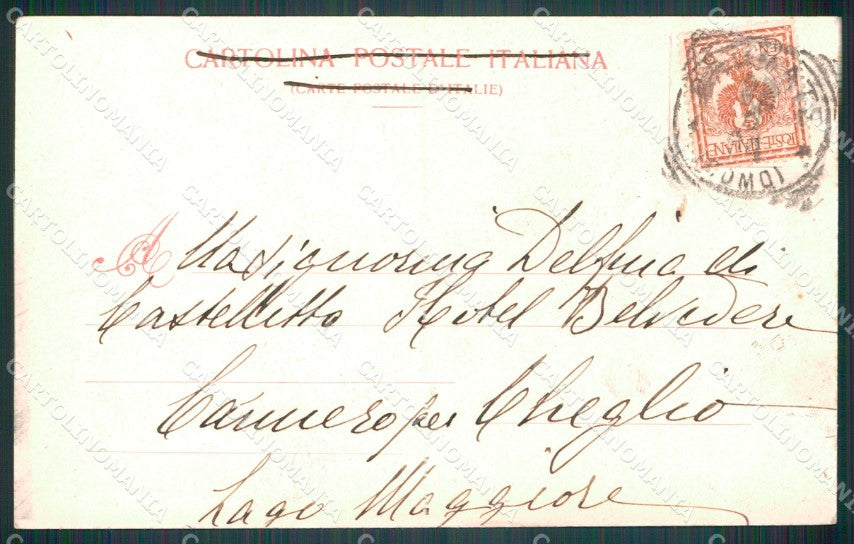 CARTOLINA POSTALE ITALIANA
(CARTE POSTALE D'ITALIE)
POSTE ITALIANE
Alla Signorina Delfina di
Castelletto Hotel Belvedere
Cannero per Cheglio
Lago Maggiore
CARTOLINOMANIA